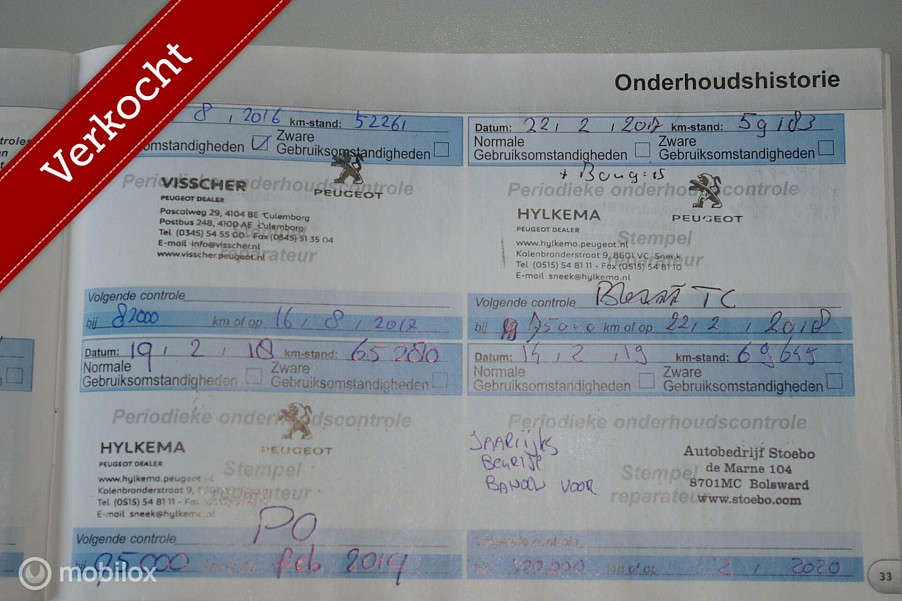 Verkocht
Onderhoudshistorie
8 , 2016 km-stand: 52261
omstandigheden Zware
Gebruiksomstandigheden
Periodieke onderhoudscontrole
VISSCHER
PEUGEOT DEALER
PEUGEOT
Pascalweg 29, 4104 BE Culemborg
Postbus 248, 4100 AE Culemborg
Tel (0345) 54 55 00 - Fax (0345) 51 35 04
E-mail info@visscher.nl
www.visscher.peugeot.nl
reparateur
Volgende controle
bij 82000 km of op 16 , 8 , 2017
Datum: 22 , 2 , 2017 km-stand: 59183
Normale Zware
Gebruiksomstandigheden Gebruiksomstandigheden
+ Bougies
Periodieke onderhoudscontrole
HYLKEMA
PEUGEOT DEALER
PEUGEOT
Stempel
reparateur
www.hylkema.peugeot.nl
Kalenbranderstraat 9, 8601 VC Sneek
Tel (0515) 54 81 11 - Fax (0515) 54 81 10
E-mail sneek@hylkema.nl
Volgende controle
bij km of op 22 , 2 , 2018
Datum: 19 , 2 , 18 km-stand: 65280
Normale Zware
Gebruiksomstandigheden Gebruiksomstandigheden
Periodieke onderhoudscontrole
HYLKEMA
PEUGEOT DEALER
PEUGEOT
Stempel
reparateur
www.hylkema.peugeot
Kalenbranderstraat 9,
Tel (0515) 54 81 11 - Fax
E-mail sneek@hylkem
PO
Volgende controle
feb 2019
Datum: 14 , 2 , 19 km-stand: 69645
Normale Zware
Gebruiksomstandigheden Gebruiksomstandigheden
Periodieke onderhoudscontrole
Stempel
reparateur
BANDEN VOOR
Autobedrijf Stoebo
de Marne 104
8701MC Bolsward
www.stoebo.com
Volgende controle
100.000 km of op 2 , 2020
33
mobilox